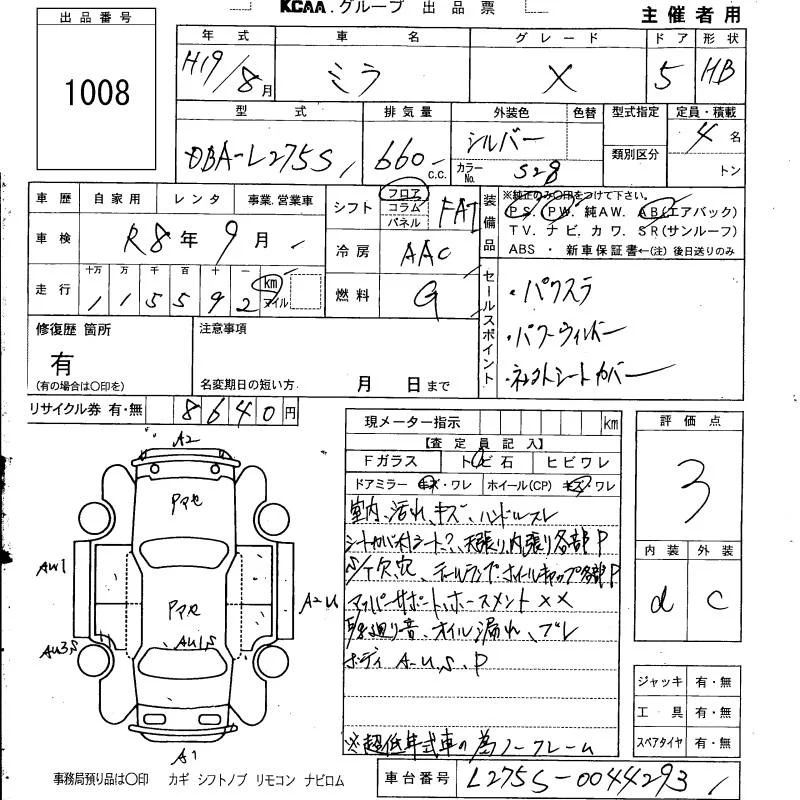 KCAA.グループ 出品票
主催者用
出品番号
1008
年式 車名 グレード ドア 形状
H19/8月 ミラ X 5 HB
型式 排気量 外装色 色替 型式指定 定員・積載
DBA-L275S 660 c.c. シルバー 4名
カラーNo. S28 類別区分 トン
車歴 自家用 レンタ 事業.営業車
車検 R8年9月
走行 十万 万 千 百 十 一
115592 km マイル
シフト フロア コラム パネル FAT
冷房 AAC
燃料 G
装備品
※純正のみ〇印をつけて下さい。
PS. PW. 純AW. AB(エアバック)
TV. ナビ. カワ. SR(サンルーフ)
ABS ・ 新車保証書←(注) 後日送りのみ
セールスポイント
・パワステ
・パワーウィンドー
シートカバー
修復歴 箇所
有
(有の場合は〇印を)
注意事項
名変期日の短い方. 月 日まで
リサイクル券 有・無 8640円
現メーター指示 km
【査定員記入】
Fガラス トビ石 ヒビワレ
ドアミラー キズ・ワレ ホイール(CP) キズ ワレ
室内、汚れ、キズ、ハンドルスレ
天張り、内張り各部P
テールランプ・ホイールキャップ各部P
ホースメント××
オイル漏れ、ブレ
ボディ A-U,S,P
※超低年式車の為ノークレーム
評価点
3
内装 外装
d C
ジャッキ 有・無
工具 有・無
スペアタイヤ 有・無
A2
Pマセ
AU1
A-U
Pマセ
AU1,S
AU3,S
A1
事務局預り品は〇印 カギ シフトノブ リモコン ナビロム
車台番号 L275S-0044293